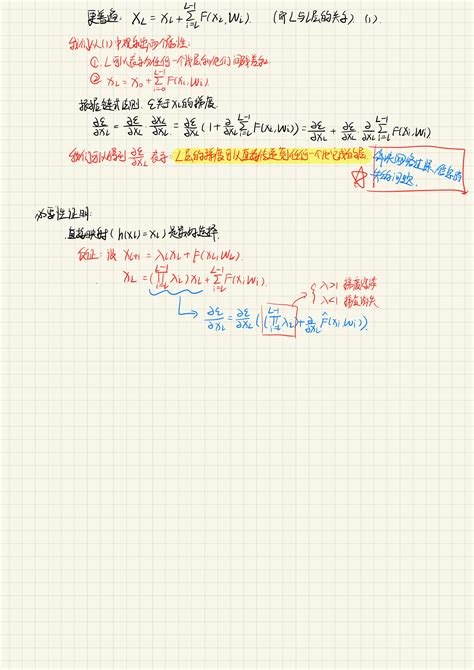 更普遍: X_L = X_l + Σ_{i=l}^{L-1} F(X_i, W_i). (即 L 与 l 层的关系) (1).
我们从(1)中观察出两个属性:
①. L 可以表示为任何一个浅层和他们间残差和
②. X_L = X_0 + Σ_{i=0}^{L-1} F(X_i, W_i).
根据链式法则, ε关于X_l的梯度.
∂ε/∂X_l = ∂ε/∂X_L ∂X_L/∂X_l = ∂ε/∂X_L (1 + ∂/∂X_l Σ_{i=l}^{L-1} F(X_i, W_i)) = ∂ε/∂X_L + ∂ε/∂X_L · ∂/∂X_l Σ_{i=l}^{L-1} F(X_i, W_i)
我们可以得到 ∂ε/∂X_L 表示: L层的梯度可以直接传递到任何一个比它浅的层.
网络
的问题.
必要性证明:
直接映射 (h(X_l) = X_l) 是最好的选择.
反证: 设 X_{l+1} = λ_l X_l + F(X_l, W_l).
X_L = (∏_{i=l}^{L-1} λ_i) X_l + Σ_{i=l}^{L-1} F(X_i, W_i).
λ>1 梯度爆炸
λ<1 梯度消失
∂ε/∂X_l = ∂ε/∂X_L ((∏_{i=l}^{L-1} λ_i) + ∂/∂X_l F̂(X_i, W_i)).